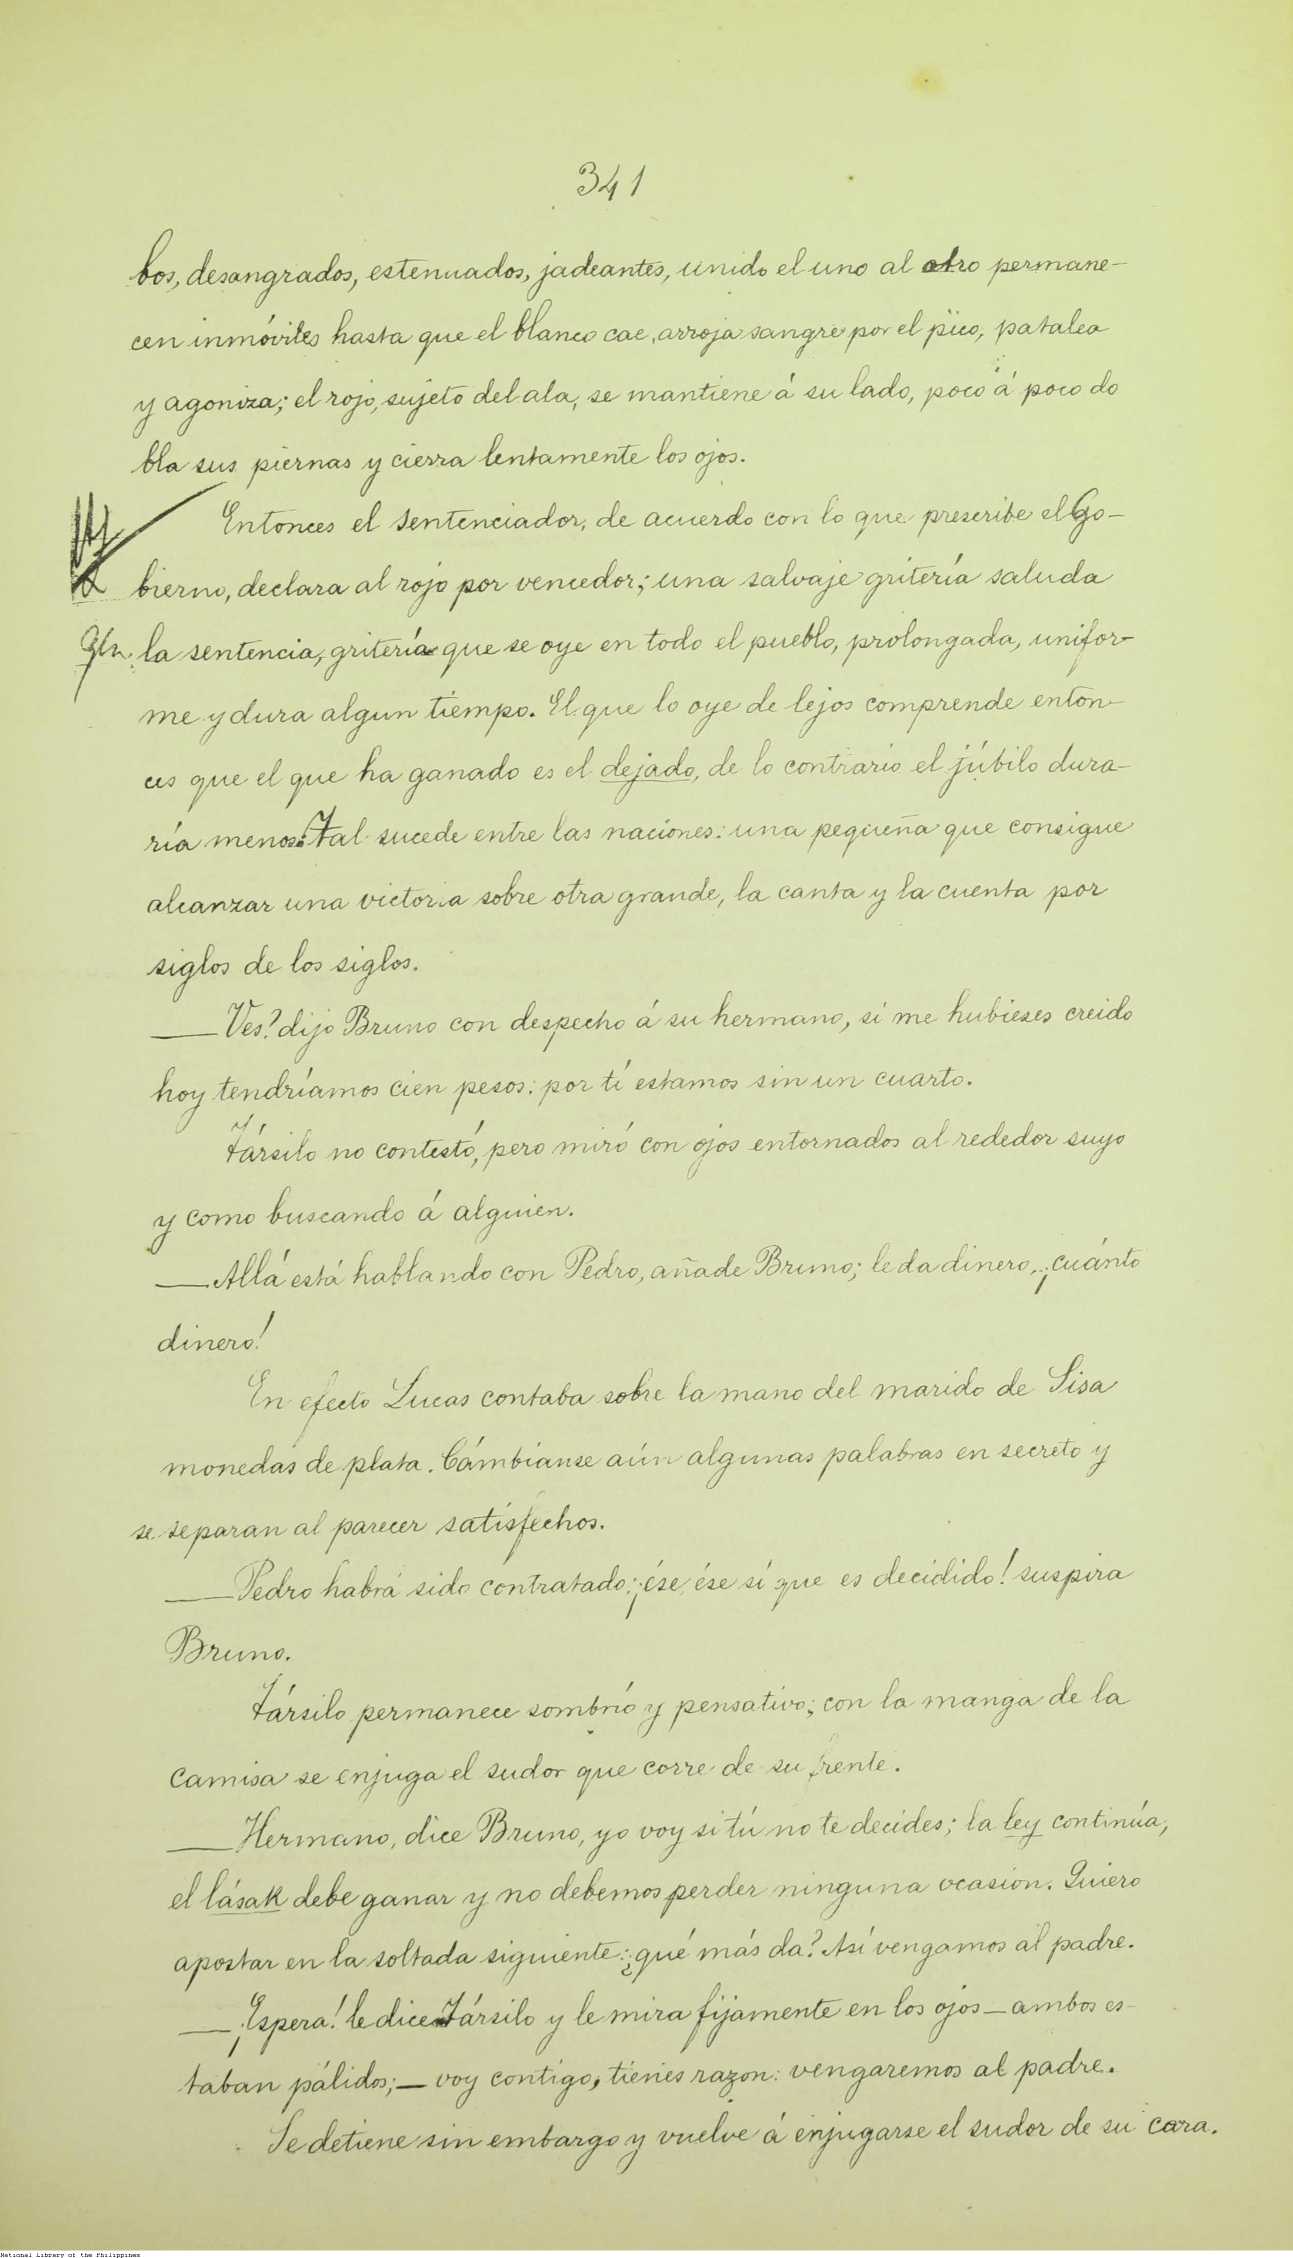 341
bos, desangrados, estenuados, jadeantes, unido el uno al otro permane-
cen inmóviles hasta que el blanco cae, arroja sangre por el pico, patalea
y agoniza; el rojo, sujeto del ala, se mantiene á su lado, poco á poco do
bla sus piernas y cierra lentamente los ojos.
Entonces el sentenciador, de acuerdo con lo que prescribe el Go-
bierno, declara al rojo por vencedor; una salvaje gritería saluda
la sentencia, gritería que se oye en todo el pueblo, prolongada, unifor-
me y dura algun tiempo. El que lo oye de lejos comprende enton-
ces que el que ha ganado es el dejado, de lo contrario el júbilo dura-
ría menos. Tal sucede entre las naciones: una pequeña que consigue
alcanzar una victoria sobre otra grande, la canta y la cuenta por
siglos de los siglos.
— Ves? dijo Bruno con despecho á su hermano, si me hubieses creido
hoy tendríamos cien pesos: por tí estamos sin un cuarto.
Társilo no contestó, pero miró con ojos entornados al rededor suyo
y como buscando á alguien.
— Allá está hablando con Pedro, añade Bruno; le da dinero, ¡cuánto
dinero!
En efecto Lucas contaba sobre la mano del marido de Sisa
monedas de plata. Cámbianse aún algunas palabras en secreto y
se separan al parecer satisfechos.
— Pedro habrá sido contratado: ¡ése, ése sí que es decidido! suspira
Bruno.
Társilo permanece sombrío y pensativo; con la manga de la
camisa se enjuga el sudor que corre de su frente.
— Hermano, dice Bruno, yo voy si tú no te decides; la ley continúa,
el lásak debe ganar y no debemos perder ninguna ocasion. Quiero
apostar en la soltada siguiente: ¿qué más da? Así vengamos al padre.
— ¡Espera! le dice Társilo y le mira fijamente en los ojos — ambos es-
taban pálidos; — voy contigo, tienes razon: vengaremos al padre.
Se detiene sin embargo y vuelve á enjugarse el sudor de su cara.
National Library of the Philippines